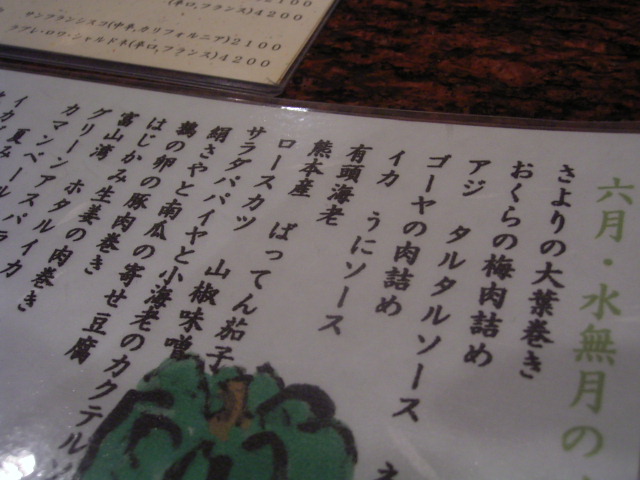 (辛口,フランス)4200
サンフランシスコ(中辛,カリフォルニア)2100
ラブレ・ロワ・シャルドネ(辛口,フランス)4200
六月・水無月の
さよりの大葉巻き
おくらの梅肉詰め
アジ タルタルソース
ゴーヤの肉詰め
イカ うにソース
有頭海老
熊本産 ばってん茄子
ロースカツ 山椒味噌
サラダパパイヤと小海老のカクテルソ
絹さやと南瓜の寄せ豆腐
鶉の卵の豚肉巻き
はじかみ生姜の肉巻き
富山湾 ホタルイカ
グリーンアスパラ
カマンベール
イカ 夏み